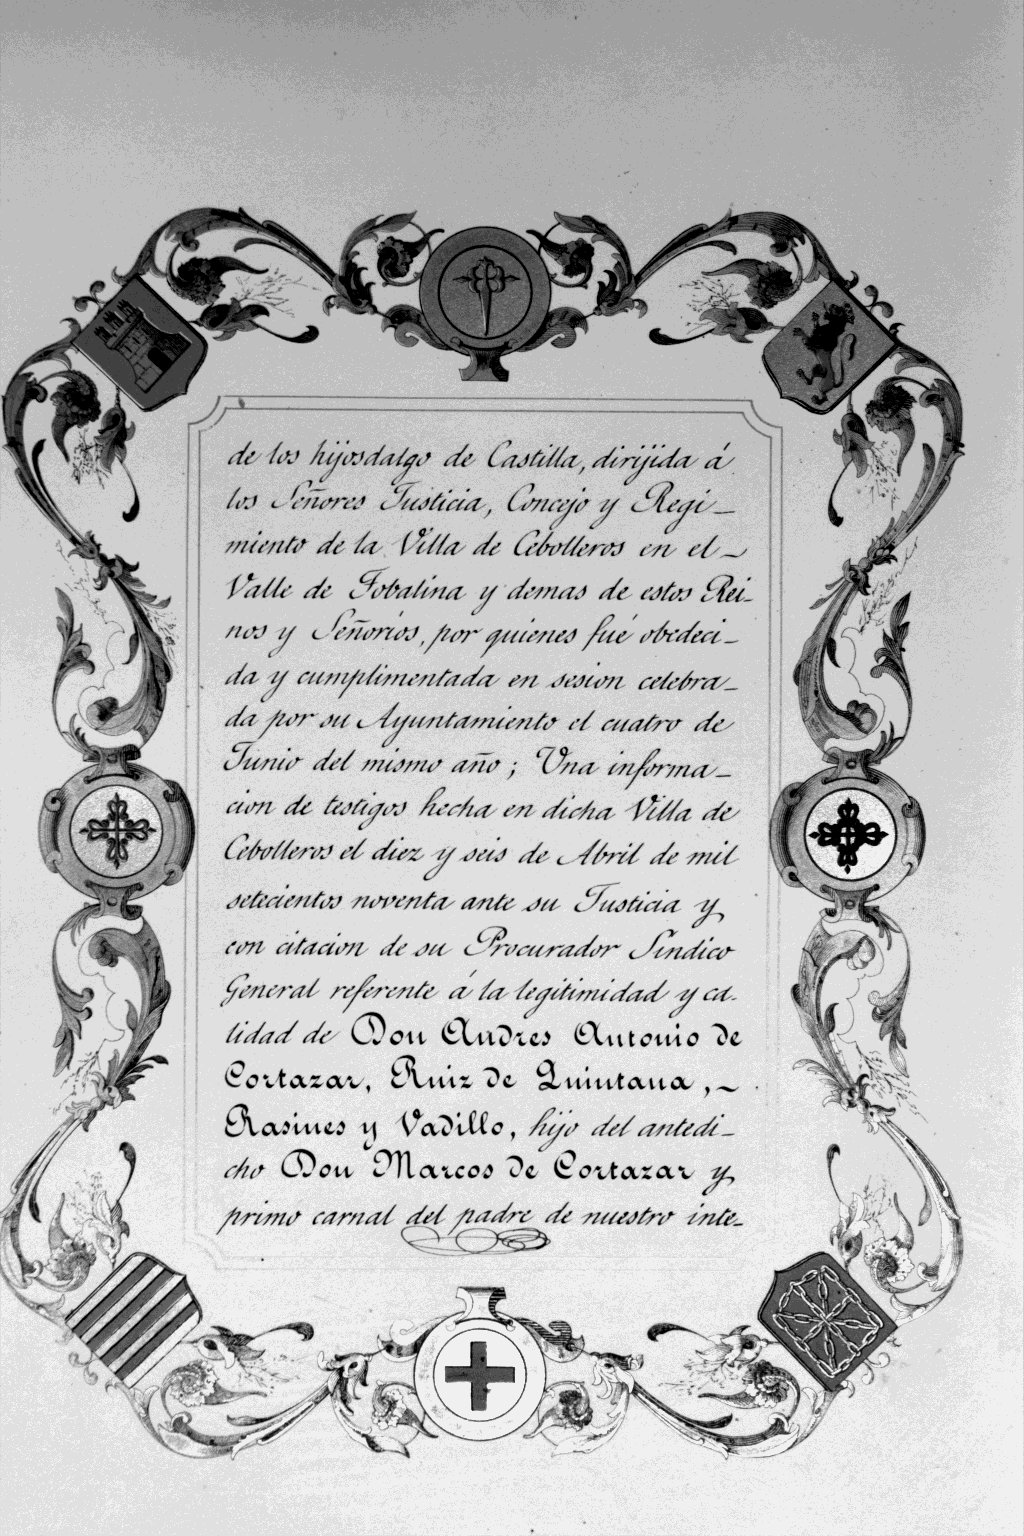 de los hijosdalgo de Castilla, dirijida á
los Señores Justicia, Concejo y Regi_
miento de la Villa de Cebolleros en el_
Valle de Tobalina y demas de estos Rei_
nos y Señoríos, por quienes fué obedeci_
da y cumplimentada en sesion celebra_
da por su Ayuntamiento el cuatro de
Junio del mismo año; Una informa_
cion de testigos hecha en dicha Villa de
Cebolleros el diez y seis de Abril de mil
setecientos noventa ante su Justicia y
con citacion de su Procurador Síndico
General referente á la legitimidad y ca_
lidad de Don Andres Antonio de
Cortazar, Ruiz de Quintana,_
Rasines y Vadillo, hijo del antedi_
cho Don Marcos de Cortazar y
primo carnal del padre de nuestro inte_